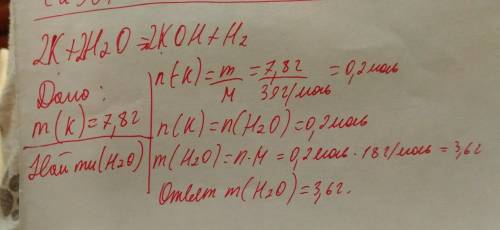 2K+2H2O=2KOH+H2
Дано:
m(K)=7,8г
Найти m(H2O)
n(K)=m/M=7,8г/39г/моль=0,2моль
n(K)=n(H2O)=0,2моль
m(H2O)=n·M=0,2моль·18г/моль=3,6г
Ответ m(H2O)=3,6г.